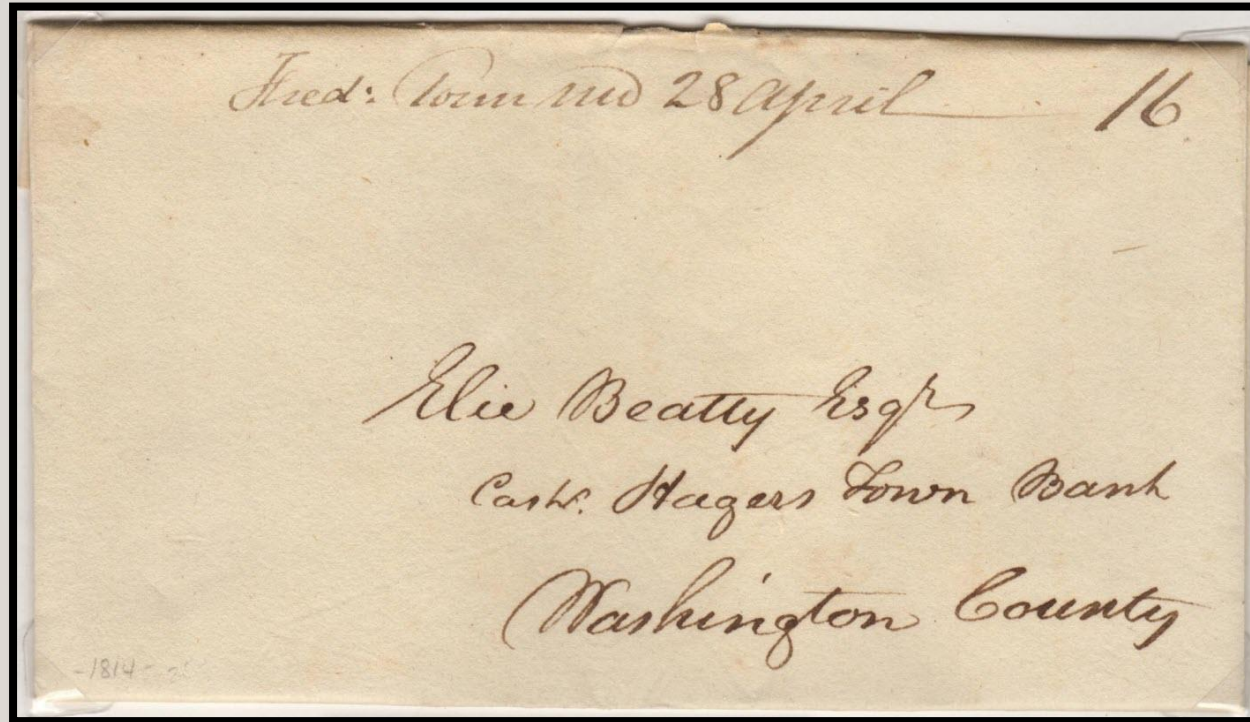 Fred: Town MD 28 April 16
Elie Beatty Esqr
Cashr. Hagers Town Bank
Washington County
-1814-